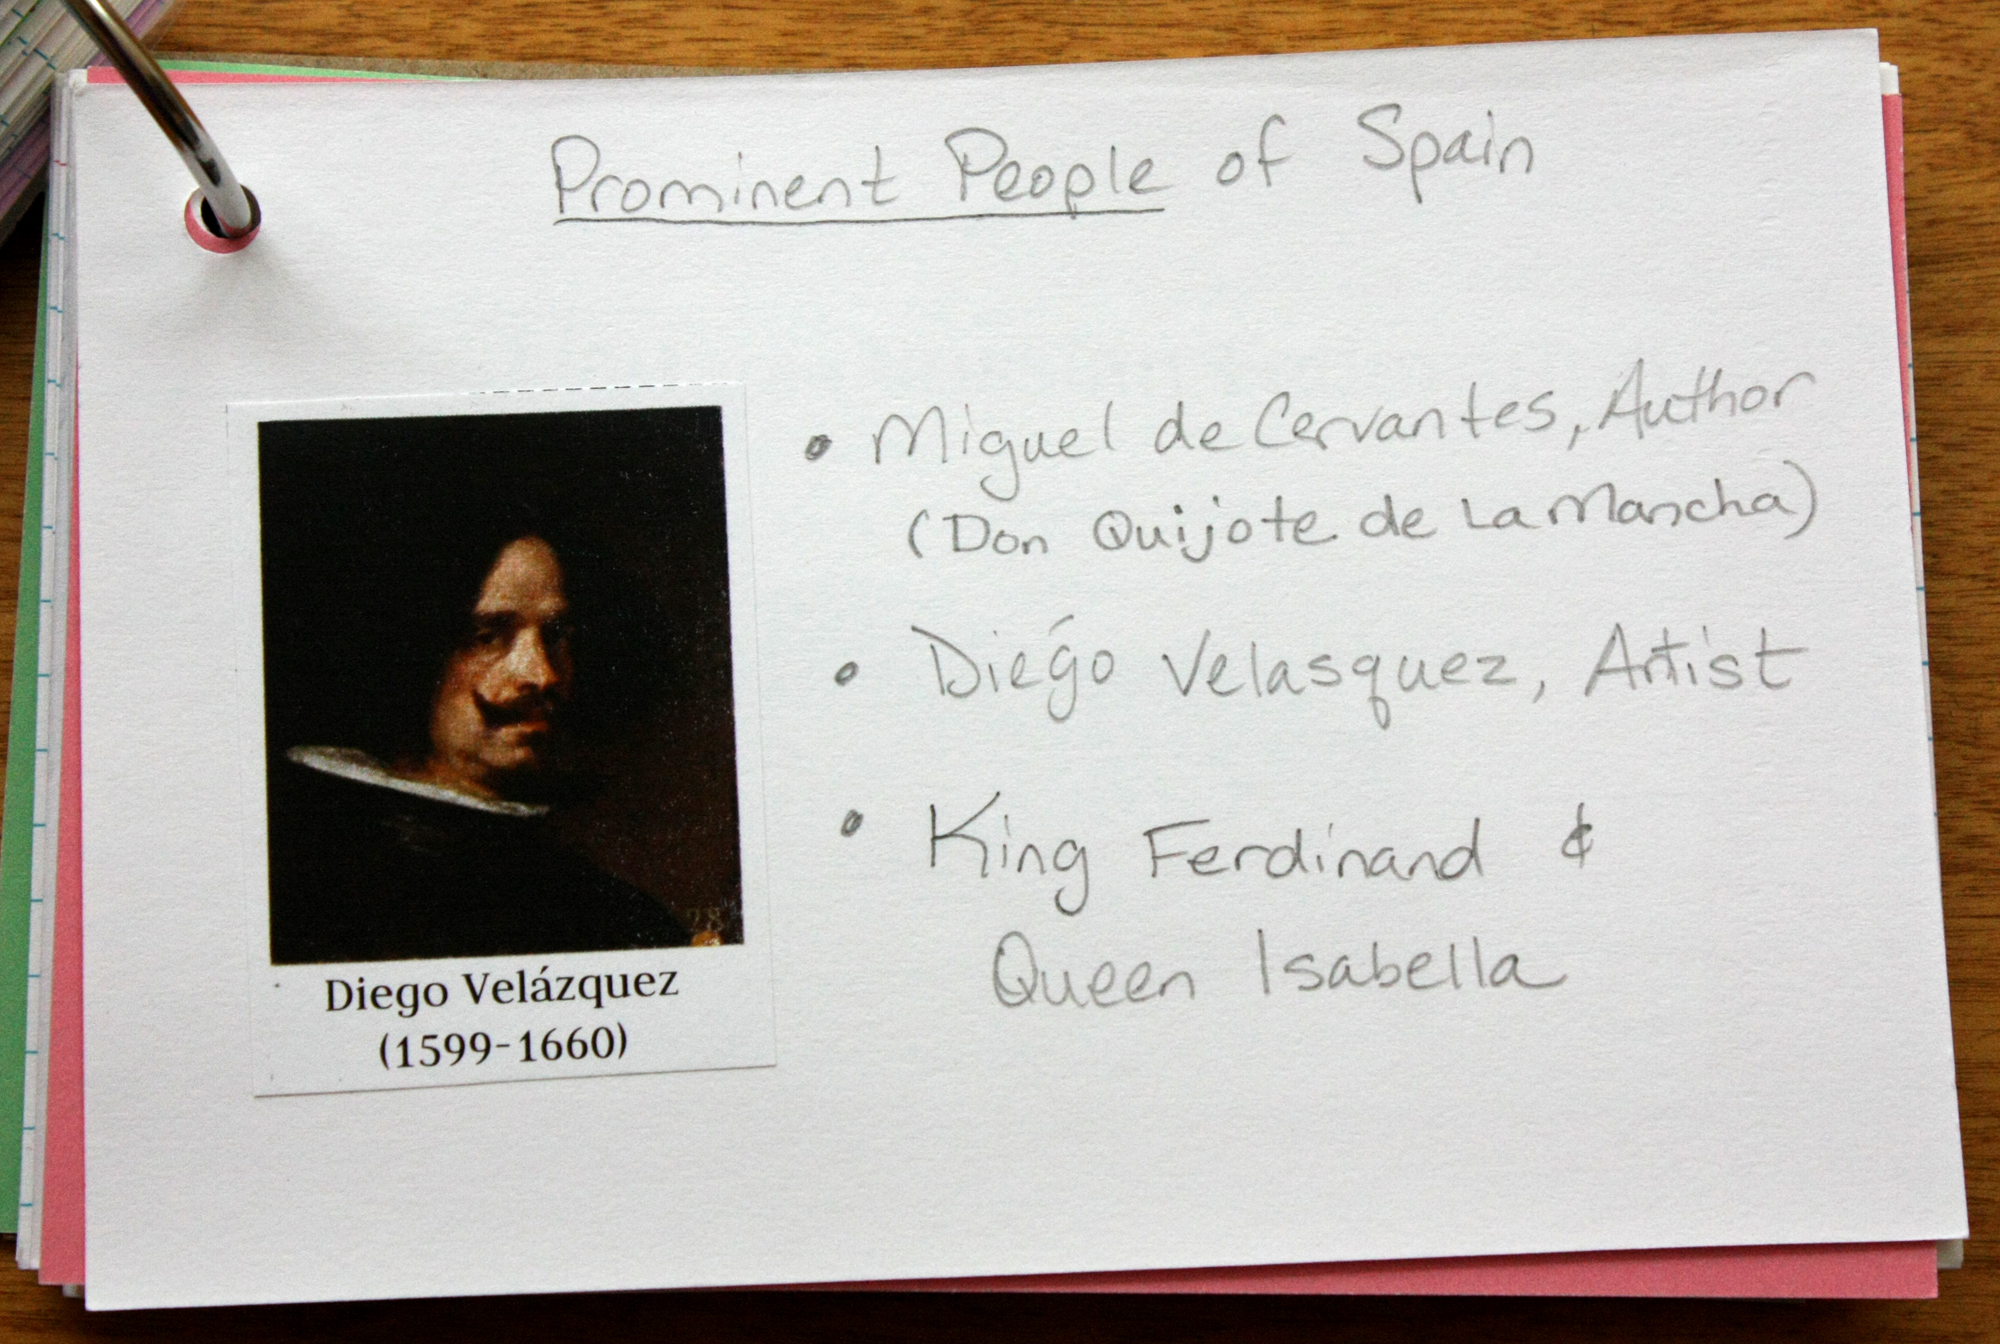 Prominent People of Spain
• Miguel de Cervantes, Author
(Don Quijote de La Mancha)
• Diego Velasquez, Artist
• King Ferdinand &
Queen Isabella
28
Diego Velázquez
(1599-1660)